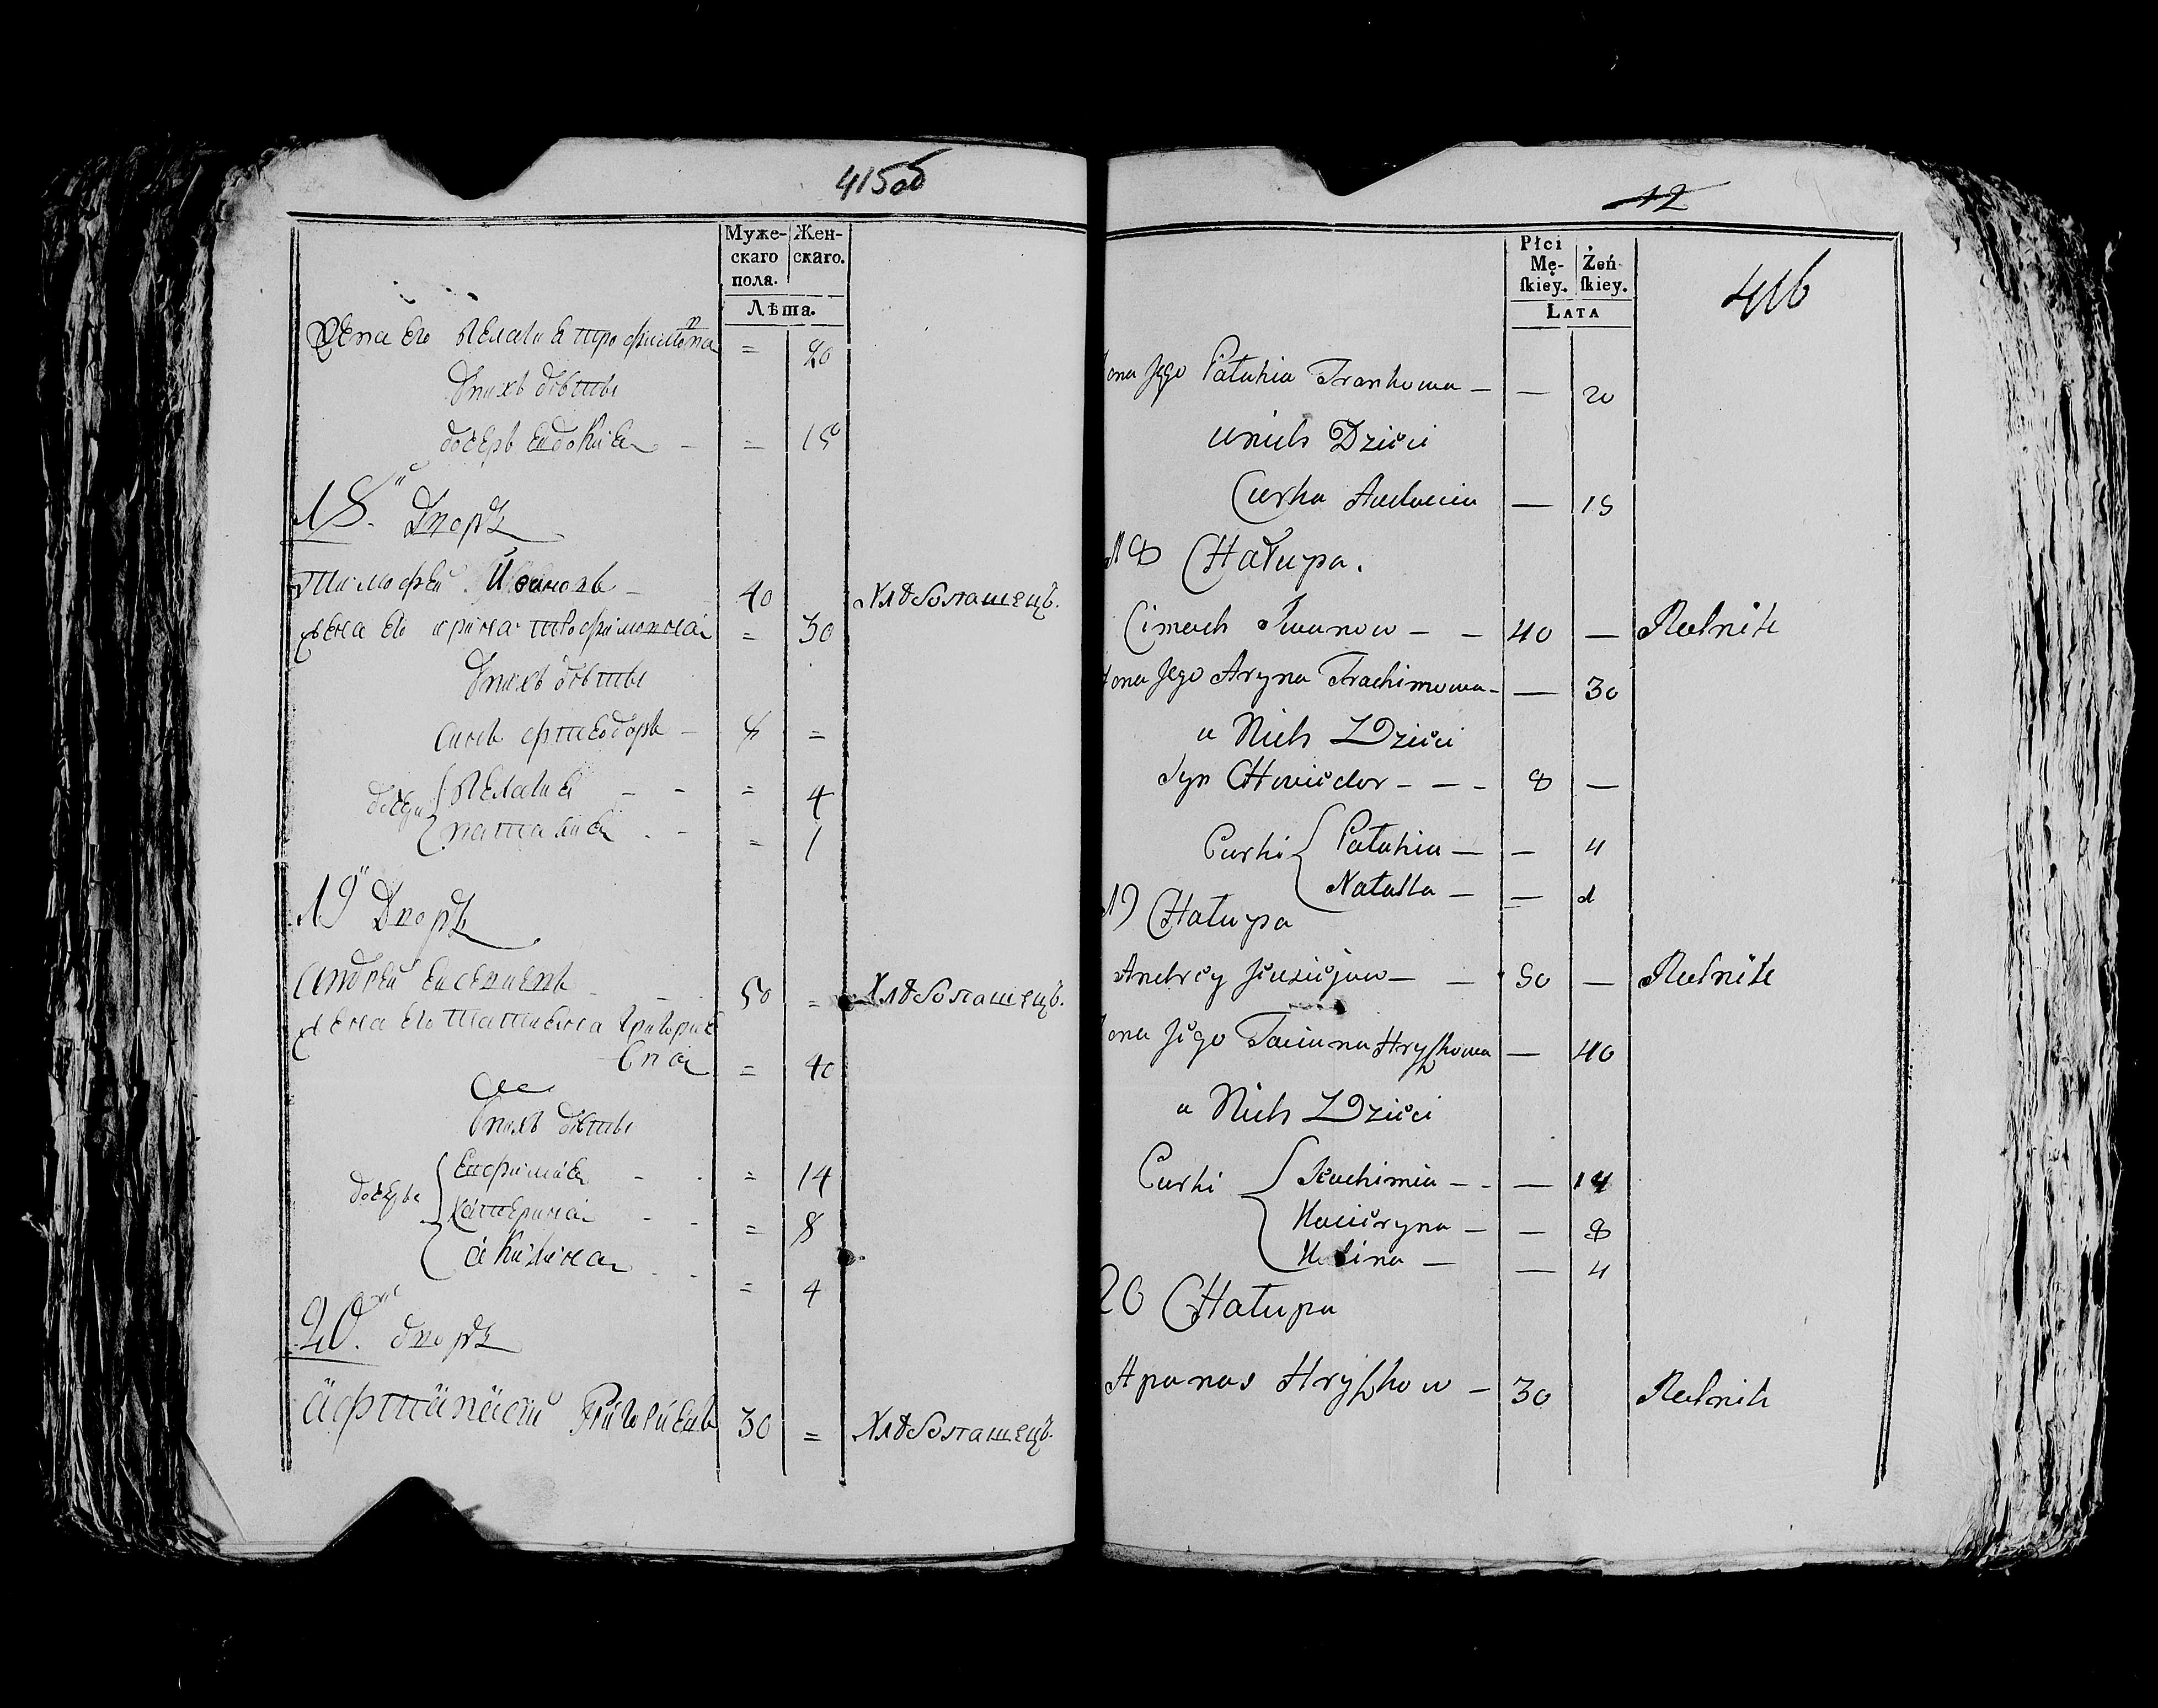 415об
Муже- Жен-
скаго скаго.
пола.
Лѣта.
Жена его Пелагиѣ Трофимовна = 20
Внихъ дѣтѣ
дочерь Евдокиѣя - = 15
18.й Дворъ
Тимофей Ивановъ - 40 Хлѣбопашецъ.
жена его ирина Трофимовная = 30
Внихъ дѣтѣ
Синъ Фтеодоръ - 8 =
дочери { Пелагиѣ - - = 4
наталиѣя . - = 1
19й Дворъ
Андрей Евсеевиевъ 50 = Хлѣбопашецъ.
жена его Татиѣяна Григориѣ
вная = 40
Внихъ дѣтѣ
дочерѣ { Евфимиѣя - - = 14
Катериная - - = 8
акилиная - - = 4
20.й дворъ
афтанасий Григориевъ 30 = Хлѣбопашецъ.
12
Płci
Mę- Żeń-
skiey. skiey.
416
LATA
ona Jego Pałahia Trankowa — — 20
unich Dzieci
Curka Audocia — 15
18 CHałupa.
Cimoch Iwanow - - 40 — Rolnik
ona Jego Aryna Trachimowa - — 30
u Nich Dzieci
Syn CHwiedor - - - 8 —
Curki { Pałahia — — 4
Natalla — — 1
19 CHałupa
Andrey Jeusiejow — — 50 — Rolnik
ona Jego Taciana Hryszkowa — 40
u Nich Dzieci
Curki { Jeuchimia - - — 14
Kacieryna — — 8
Kulina — — 4
20 CHałupa
Apanas Hryszkow — 30 Rolnik